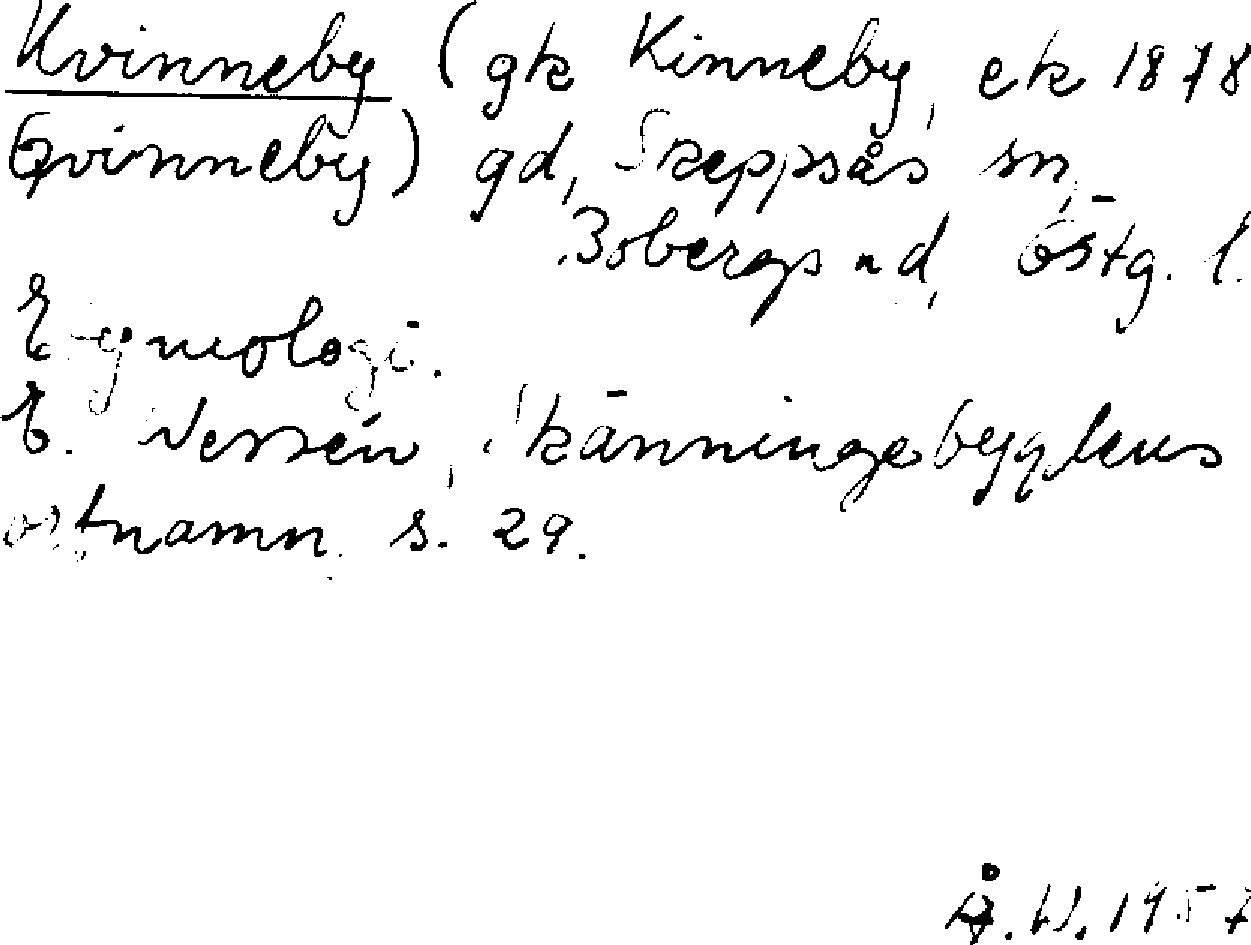 Kvinneby (gk Kinneby, ek 1878
Qvinneby) gd, Skeppsås sn,
Bobergs hd, Östg. l.
Etymologi.
E. Wessén, Skänningebygdens
ortnamn s. 29.
Å.W. 1957